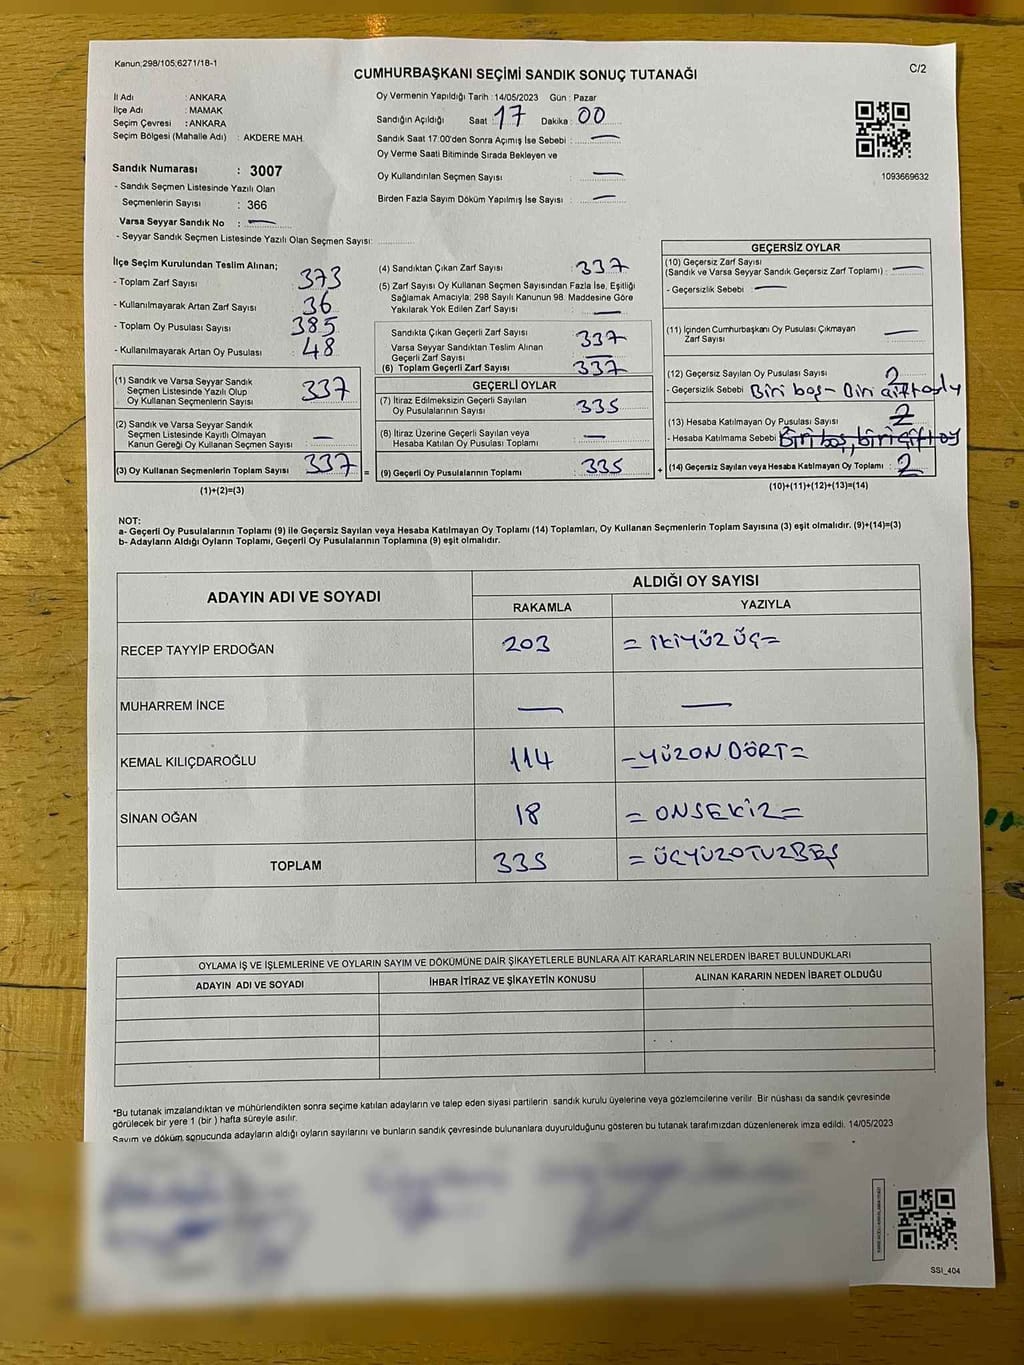 Kanun;298/105;6271/18-1
CUMHURBAŞKANI SEÇİMİ SANDIK SONUÇ TUTANAĞI
C/2
İl Adı : ANKARA
İlçe Adı : MAMAK
Seçim Çevresi : ANKARA
Seçim Bölgesi (Mahalle Adı) : AKDERE MAH.
Sandık Numarası : 3007
- Sandık Seçmen Listesinde Yazılı Olan
Seçmenlerin Sayısı : 366
Varsa Seyyar Sandık No : —
- Seyyar Sandık Seçmen Listesinde Yazılı Olan Seçmen Sayısı: ............
Oy Vermenin Yapıldığı Tarih : 14/05/2023 Gün : Pazar
Sandığın Açıldığı Saat : 17 Dakika : 00
Sandık Saat 17:00'den Sonra Açımış İse Sebebi : —
Oy Verme Saati Bitiminde Sırada Bekleyen ve
Oy Kullandırılan Seçmen Sayısı : —
Birden Fazla Sayım Döküm Yapılmış İse Sayısı : —
1093669632
İlçe Seçim Kurulundan Teslim Alınan;
- Toplam Zarf Sayısı : 373
- Kullanılmayarak Artan Zarf Sayısı : 36
- Toplam Oy Pusulası Sayısı : 385
- Kullanılmayarak Artan Oy Pusulası : 48
(1) Sandık ve Varsa Seyyar Sandık
Seçmen Listesinde Yazılı Olup
Oy Kullanan Seçmenlerin Sayısı : 337
(2) Sandık ve Varsa Seyyar Sandık
Seçmen Listesinde Kayıtlı Olmayan
Kanun Gereği Oy Kullanan Seçmen Sayısı : —
(3) Oy Kullanan Seçmenlerin Toplam Sayısı : 337 =
(1)+(2)=(3)
(4) Sandıktan Çıkan Zarf Sayısı : 337
(5) Zarf Sayısı Oy Kullanan Seçmen Sayısından Fazla İse, Eşitliği
Sağlamak Amacıyla; 298 Sayılı Kanunun 98. Maddesine Göre
Yakılarak Yok Edilen Zarf Sayısı : —
Sandıkta Çıkan Geçerli Zarf Sayısı : 337
Varsa Seyyar Sandıktan Teslim Alınan
Geçerli Zarf Sayısı : —
(6) Toplam Geçerli Zarf Sayısı : 337
GEÇERLİ OYLAR
(7) İtiraz Edilmeksizin Geçerli Sayılan
Oy Pusulalarının Sayısı : 335
(8) İtiraz Üzerine Geçerli Sayılan veya
Hesaba Katılan Oy Pusulası Toplamı : —
(9) Geçerli Oy Pusulalarının Toplamı : 335 +
GEÇERSİZ OYLAR
(10) Geçersiz Zarf Sayısı
(Sandık ve Varsa Seyyar Sandık Geçersiz Zarf Toplamı) : —
- Geçersizlik Sebebi : —
(11) İçinden Cumhurbaşkanı Oy Pusulası Çıkmayan
Zarf Sayısı : —
(12) Geçersiz Sayılan Oy Pusulası Sayısı : 2
- Geçersizlik Sebebi : Biri boş - Biri çift oy
(13) Hesaba Katılmayan Oy Pusulası Sayısı : 2
- Hesaba Katılmama Sebebi : Biri boş, biri çift oy
(14) Geçersiz Sayılan veya Hesaba Katılmayan Oy Toplamı : 2
(10)+(11)+(12)+(13)=(14)
NOT:
a- Geçerli Oy Pusulalarının Toplamı (9) ile Geçersiz Sayılan veya Hesaba Katılmayan Oy Toplamı (14) Toplamları, Oy Kullanan Seçmenlerin Toplam Sayısına (3) eşit olmalıdır. (9)+(14)=(3)
b- Adayların Aldığı Oyların Toplamı, Geçerli Oy Pusulalarının Toplamına (9) eşit olmalıdır.
ADAYIN ADI VE SOYADI
ALDIĞI OY SAYISI
RAKAMLA YAZIYLA
RECEP TAYYİP ERDOĞAN 203 = İKİYÜZ ÜÇ =
MUHARREM İNCE — —
KEMAL KILIÇDAROĞLU 114 = YÜZON DÖRT =
SİNAN OĞAN 18 = ONSEKİZ =
TOPLAM 335 = ÜÇYÜZOTUZBEŞ
OYLAMA İŞ VE İŞLEMLERİNE VE OYLARIN SAYIM VE DÖKÜMÜNE DAİR ŞİKAYETLERLE BUNLARA AİT KARARLARIN NELERDEN İBARET BULUNDUKLARI
ADAYIN ADI VE SOYADI İHBAR İTİRAZ VE ŞİKAYETİN KONUSU ALINAN KARARIN NEDEN İBARET OLDUĞU
*Bu tutanak imzalandıktan ve mühürlendikten sonra seçime katılan adayların ve talep eden siyasi partilerin sandık kurulu üyelerine veya gözlemcilerine verilir. Bir nüshası da sandık çevresinde
görülecek bir yere 1 (bir ) hafta süreyle asılır.
Sayım ve döküm sonucunda adayların aldığı oyların sayılarını ve bunların sandık çevresinde bulunanlara duyurulduğunu gösteren bu tutanak tarafımızdan düzenlenerek imza edildi. 14/05/2023
SSI_404